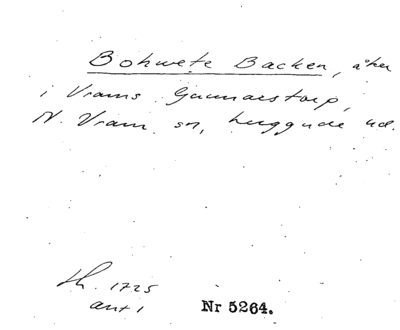 Bohwete Backen, åker
i Vrams Gunnarstorp,
N. Vram sn, Luggude hd.
Lh. 1725
ant 1
Nr 5264.